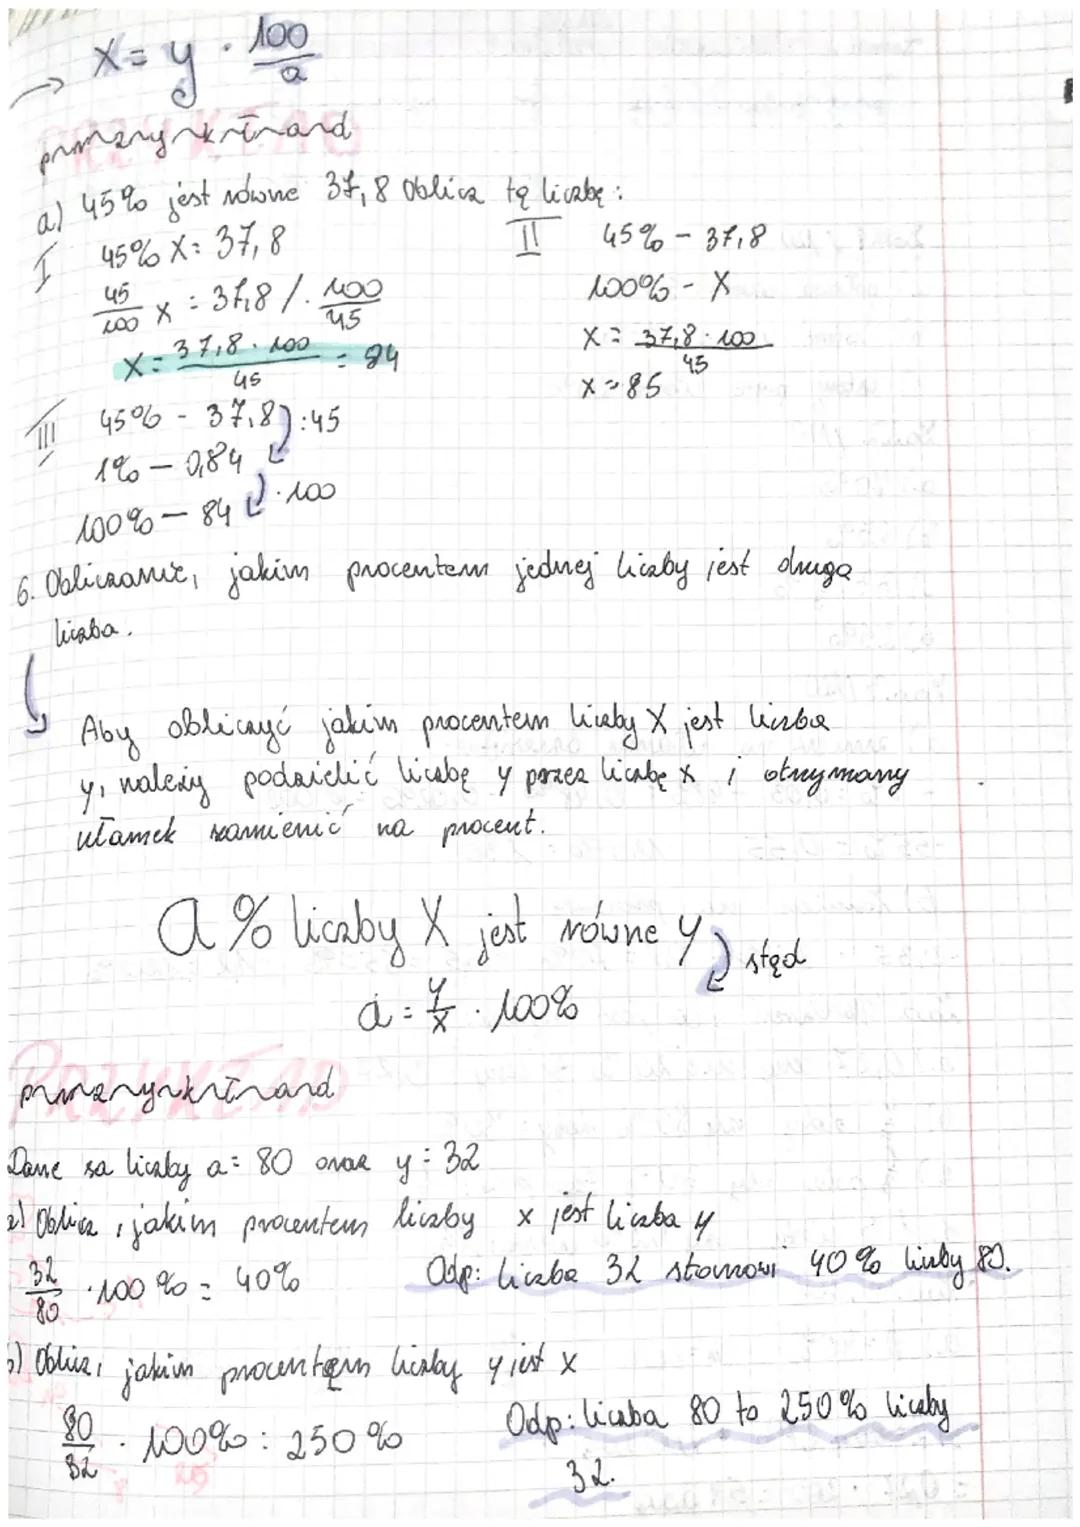 x = y · 100/a
przykład
a) 45% jest równe 37,8 Oblicz tę liczbę:
I 45% X = 37,8
45/100 x = 37,8 /· 100/45
X = 37,8 · 100/45 = 84
II 45% - 37,8
100% - X
X = 37,8 · 100/45
x = 85
III 45% - 37,8 :45
1% - 0,84
100% - 84 ·100
6. Obliczanie, jakim procentem jednej liczby jest druga
liczba.
Aby obliczyć jakim procentem liczby X jest liczba
y, należy podzielić liczbę y przez liczbę x i otrzymany
ułamek zamienić na procent.
a % liczby X jest równe y
stąd
a = y/x · 100%
PRZYKŁAD
przykład
Dane sa liczby a = 80 oraz y = 32
a) Oblicz, jakim procentem liczby x jest liczba y
32/80 · 100% = 40%
Odp: liczba 32 stanowi 40% liczby 80.
b) Oblicz, jakim procentem liczby y jest x
80/32 · 100% = 250%
Odp: liczba 80 to 250% liczby
32.